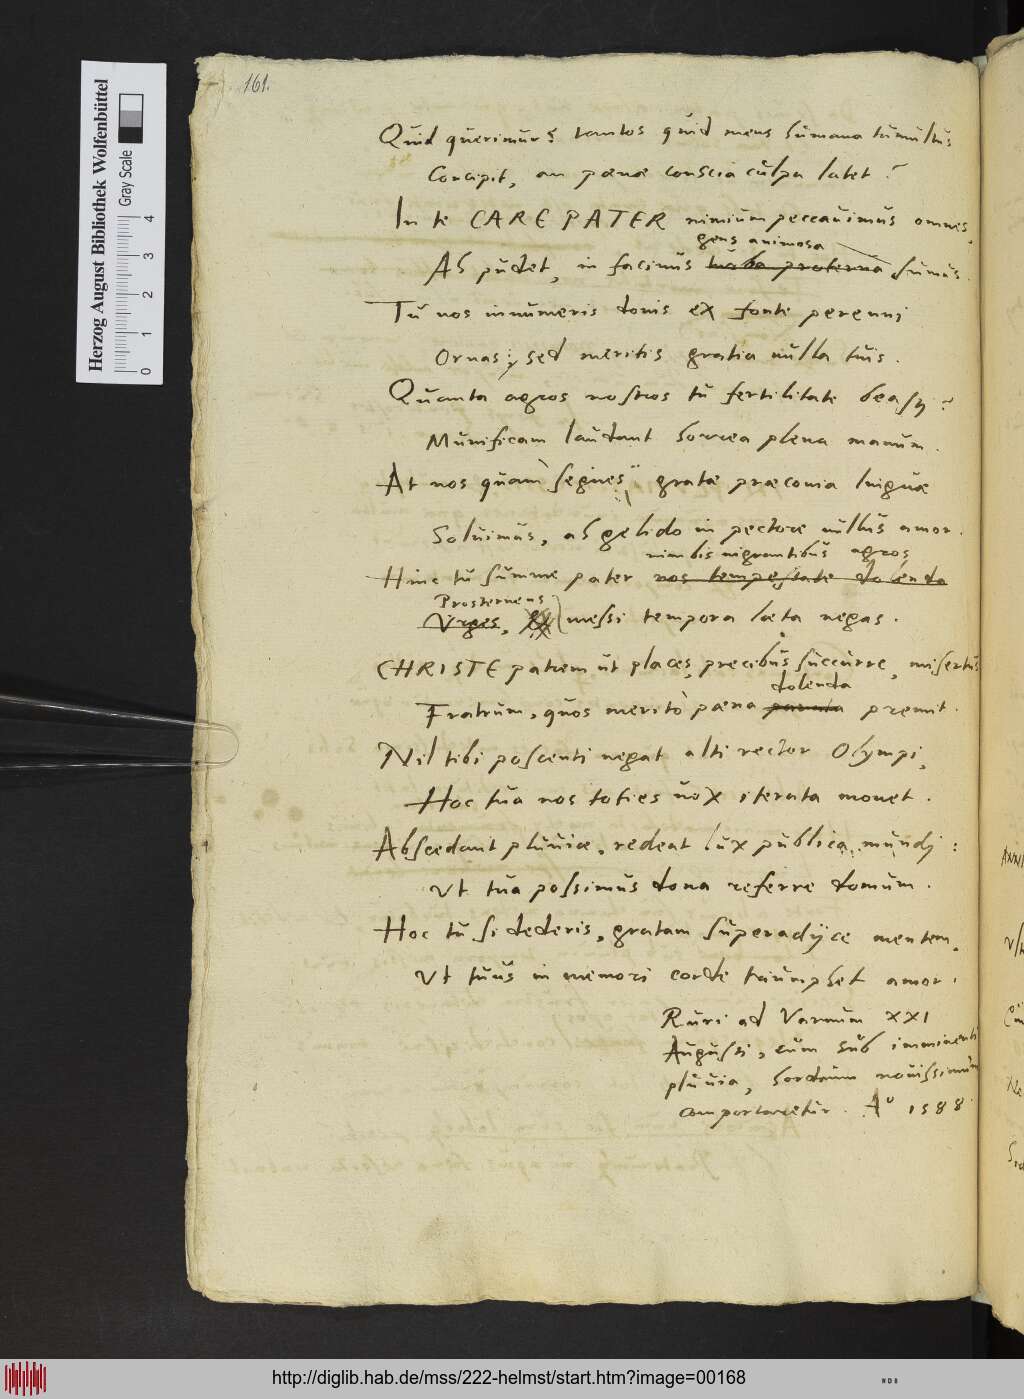 161.
Quid querimur? tantos quid mens humana tumultus
Concipit, an pœnæ conscia culpa latet?
In te CARE PATER nimium peccauimus omnes,
gens animosa
Ah pudet, in facinus turba proterua sumus.
Tu nos innumeris donis ex fonte perenni
Ornas; sed meritis gratia nulla tuis.
Quanta agros nostros tu fertilitate beasti?
Munificam laudant horrea plena manum.
At nos quàm segnes gratæ præconia linguæ
Soluimus, ah gelido in pectore nullus amor.
nimbis nigrantibus agros
Hinc tu summe pater nos tempestate dolenda
Prosternens
Vrges, messi tempora læta negas.
CHRISTE patrem ut places, precibus succurre, misertus
dolenda
Fratrum, quos meritò pœna parata premit.
Nil tibi poscenti negat alti rector Olympi,
Hoc tua nos toties uox iterata monet.
Abscedant pluuiæ, redeat lux publica mundj:
Vt tua possimus dona referre domum.
Hoc tu si dederis, gratam superadijce mentem,
Vt tuus in memori corde triumphet amor.
Ruri ad Varnum XXI
Augusti, cum sub imminenti
pluuia, hordeum nouissimum
comportaretur. A° 1588.
Herzog August Bibliothek Wolfenbüttel
Gray Scale
0 1 2 3 4
http://diglib.hab.de/mss/222-helmst/start.htm?image=00168